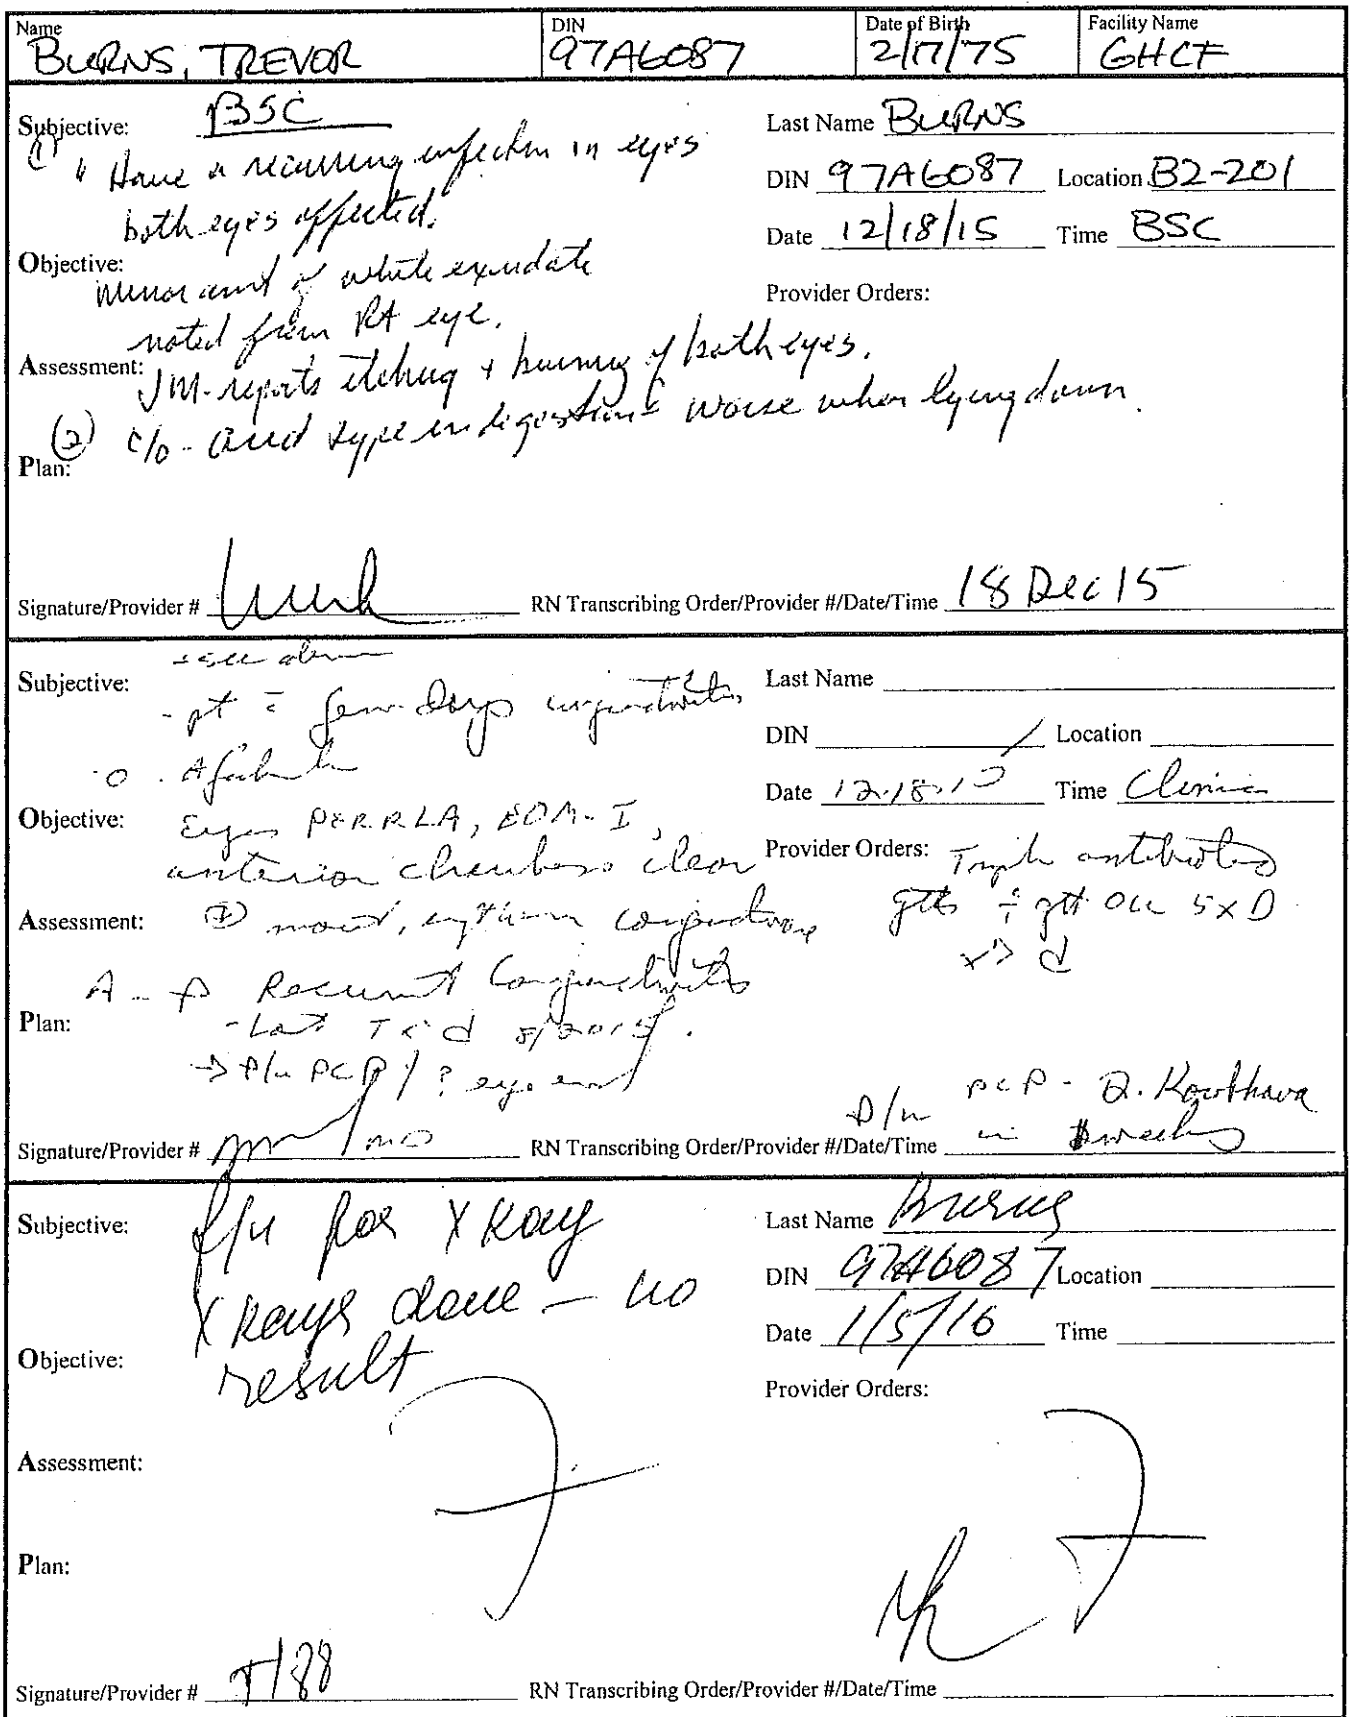 Name DIN Date of Birth Facility Name
BURNS, TREVOR 97A6087 2/17/75 GHCF
Subjective: BSC
1) " Have a recurring infection in eyes
both eyes affected.
Objective:
Minor amt of white exudate
noted from Rt eye.
Assessment: I/M-reports itching + burning of both eyes.
(2) c/o - acid type indigestion worse when lying down.
Plan:
Last Name BURNS
DIN 97A6087 Location B2-201
Date 12/18/15 Time BSC
Provider Orders:
Signature/Provider # RN Transcribing Order/Provider #/Date/Time 18 Dec 15
Subjective: - see above
- pt few days conjunctivitis
O. Afebrile
Objective: Eyes PERRLA, EOM-I,
anterior chambers clear
Assessment: conjunctivae
A - Recurrent Conjunctivitis
Plan: - Last 8/2015.
→ F/u PCP / ? eye
Last Name
DIN Location
Date 12.18.15 Time Clinic
Provider Orders: Triple antibiotic
gtts gtt OU 5xD
F/u PCP -
in weeks
Signature/Provider # MD RN Transcribing Order/Provider #/Date/Time
Subjective: f/u for X Ray
X Rays done - no
result
Objective:
Assessment:
Plan:
Last Name Burns
DIN 97A6087 Location
Date 1/5/16 Time
Provider Orders:
Signature/Provider # T188 RN Transcribing Order/Provider #/Date/Time